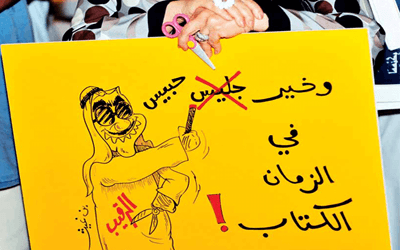 وخير جليس حبيس
في
الزمان
الكتاب !
الرقيب